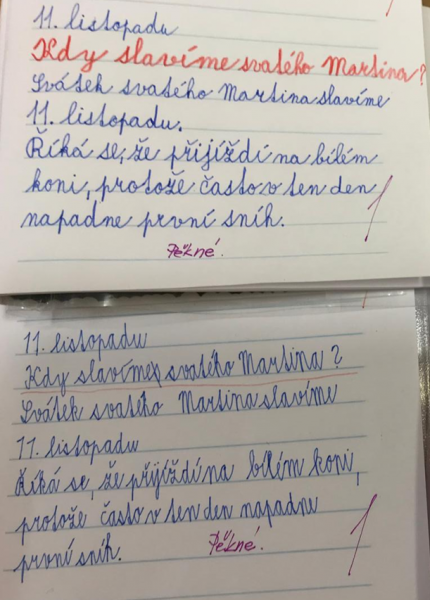 11. listopadu
Kdy slavíme svatého Martina?
Svátek svatého Martina slavíme
11. listopadu.
Říká se, že přijíždí na bílém
koni, protože často v ten den
napadne první sníh.
Pěkné.
1
11. listopadu
Kdy slavíme svatého Martina?
Svátek svatého Martina slavíme
11. listopadu
Říká se, že přijíždí na bílém koni,
protože často v ten den napadne
první sníh.
Pěkné.
1